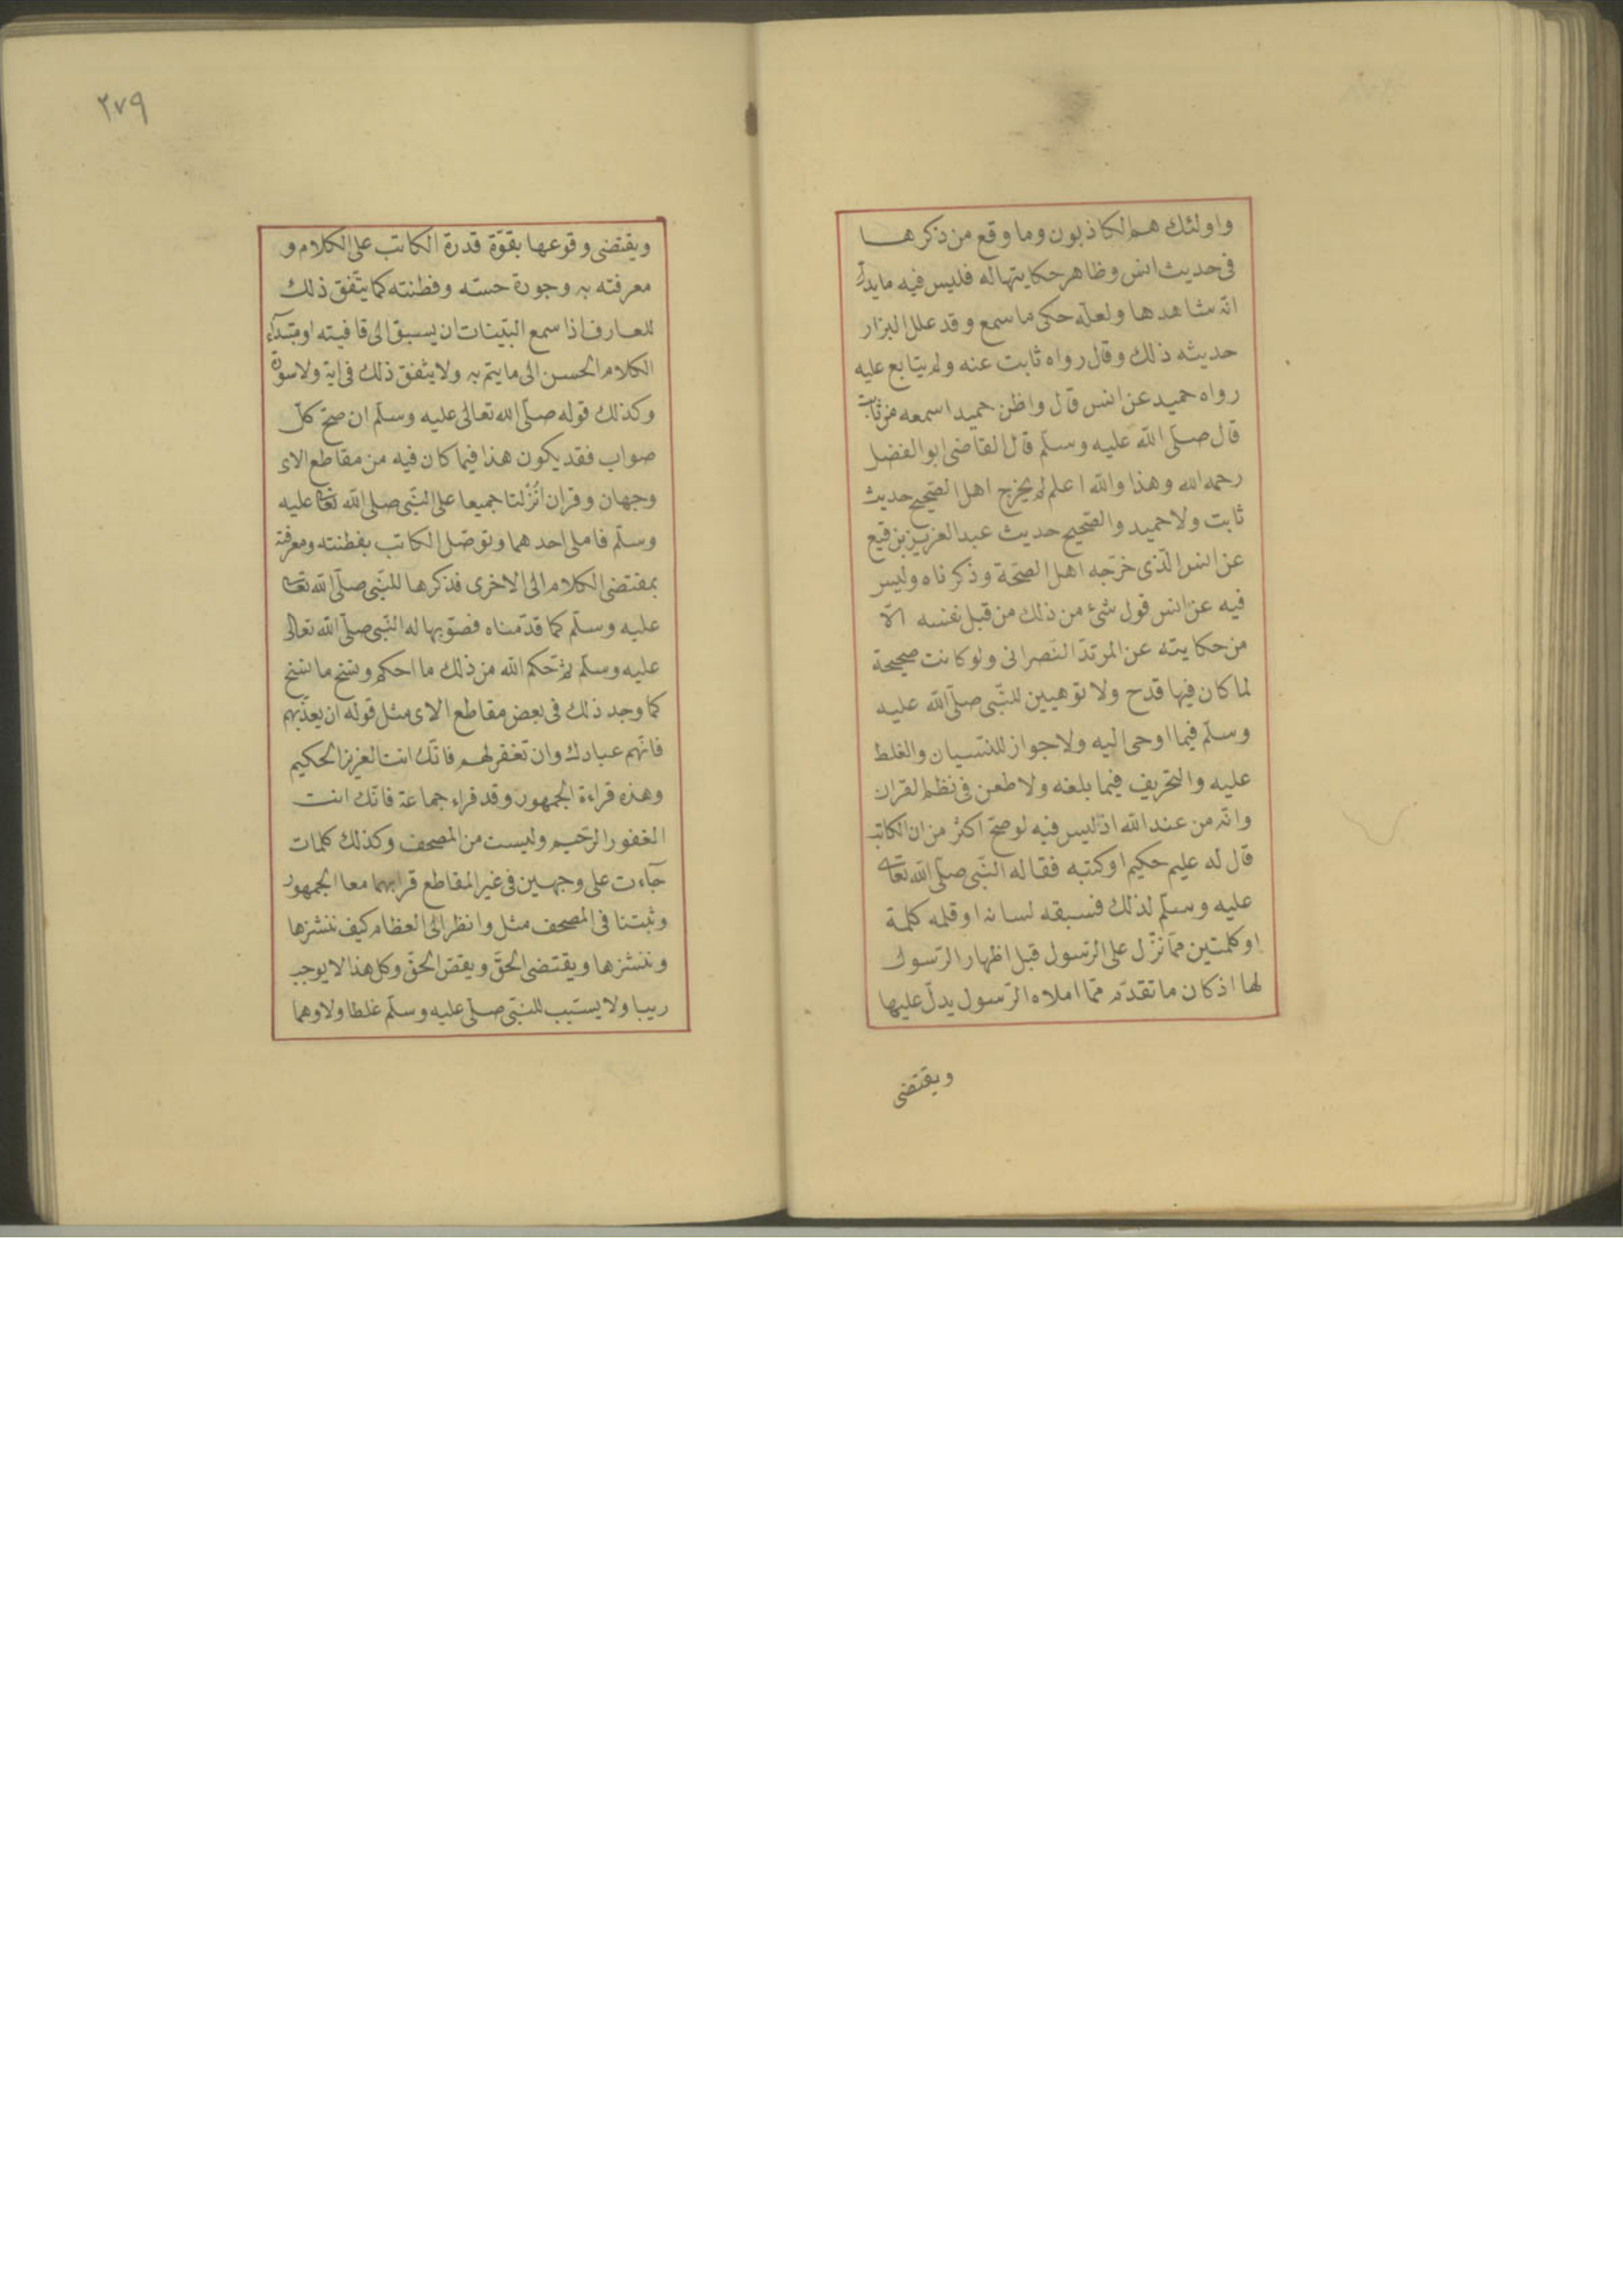 واولئك هم الكاذبون وما وقع من ذكرها
فى حديث انس وظاهر حكايتها له فليس فيه ما يدل
انه شاهدها ولعله حكى ما سمع وقد علل البزار
حديثه ذلك وقال رواه ثابت عنه ولم يتابع عليه
رواه حميد عن انس قال واظن حميدا سمعه من ثابت
قال صلّى الله عليه وسلّم قال القاضى ابو الفضل
رحمه الله وهذا والله اعلم لم يخرج اهل الصّحيح حديث
ثابت ولا حميد والصّحيح حديث عبد العزيز بن رفيع
عن انس الّذى خرّجه اهل الصّحّة وذكرناه وليس
فيه عن انس قول شئ من ذلك من قبل نفسه الّا
من حكايته عن المرتدّ النّصرانى ولو كانت صحيحة
لما كان فيها قدح ولا توهيين للنّبى صلّى الله عليه
وسلّم فيما اوحى اليه ولا جواز للنّسيان والغلط
عليه والتحريف فيما بلغه ولا طعن فى نظم القران
وانّه من عند الله اذ ليس فيه لو صحّ اكثر من ان الكاتب
قال له عليم حكيم او كتبه فقال له النّبى صلّى الله تعا
عليه وسلّم لذلك فسبقه لسانه او قلمه كلمة
او كلمتين ممّا نزّل على الرّسول قبل اظهار الرّسول
لها اذ كان ما تقدّم ممّا املاه الرّسول يدلّ عليها
ويقتضى
٢٧٩
ويقتضى وقوعها بقوّة قدرة الكاتب على الكلام و
معرفته به وجودة حسّه وفطنته كما يتّفق ذلك
للعارف اذا سمع البيّنات ان يسبق الى قافيته او مبتدآء
الكلام الحسن الى ما يتم به ولا يتّفق ذلك فى اية ولا سورة
وكذلك قوله صلّى الله تعالى عليه وسلّم ان صحّ كلّ
صواب فقد يكون هذا فيما كان فيه من مقاطع الاى
وجهان وقران انزلتا جميعا على النّبى صلى الله تعا عليه
وسلّم فاملى احدهما وتوصّل الكاتب بفطنته ومعرفته
بمقتضى الكلام الى الاخرى فذكرها للنّبى صلّى الله تعا
عليه وسلّم كما قدّمناه فصوّبها له النّبى صلّى الله تعالى
عليه وسلّم ثمّ حكم الله من ذلك ما احكم ونسخ ما نسخ
كما وجد ذلك فى بعض مقاطع الاى مثل قوله ان يعذّبهم
فانّهم عبادك وان تغفر لهم فانّك انت العزيز الحكيم
وهذه قراءة الجمهور وقد قراء جماعة فانّك انت
الغفور الرّحيم وليست من المصحف وكذلك كلمات
جآءت على وجهين فى غير المقاطع قرابهما معا الجمهور
وثبتنا فى المصحف مثل وانظر الى العظام كيف ننشرها
وننشزها ويقتضى الحقّ ويقصّ الحقّ وكل هذا لا يوجب
ريبا ولا يسبّب للنّبى صلّى عليه وسلّم غلطا ولا وهما